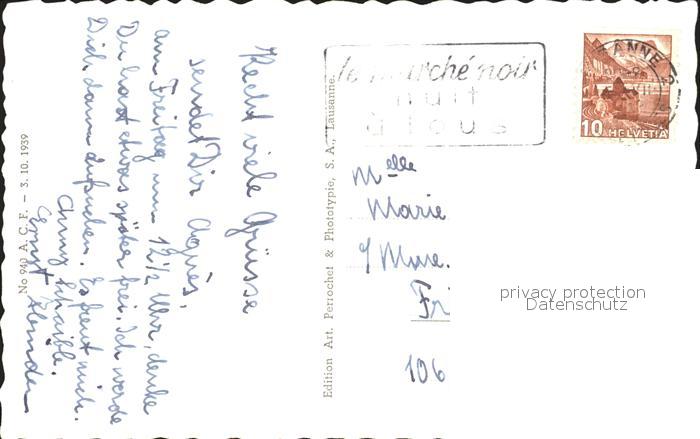 Recht viele Grüsse
sendet Dir Agnès,
am Freitag um 12½ Uhr, denke
Du hast etwas später frei. Ich werde
Dich dann aufsuchen. Es freut mich.
Ernst
No 940 A. C. F. — 3. 10. 1939
Edition Art. Perrochet & Phototypie, S. A., Lausanne.
le marché noir
nuit
à tous
LAUSANNE 2
10 HELVETIA
Melle
Marie
Mme.
Fri
106
privacy protection
Datenschutz